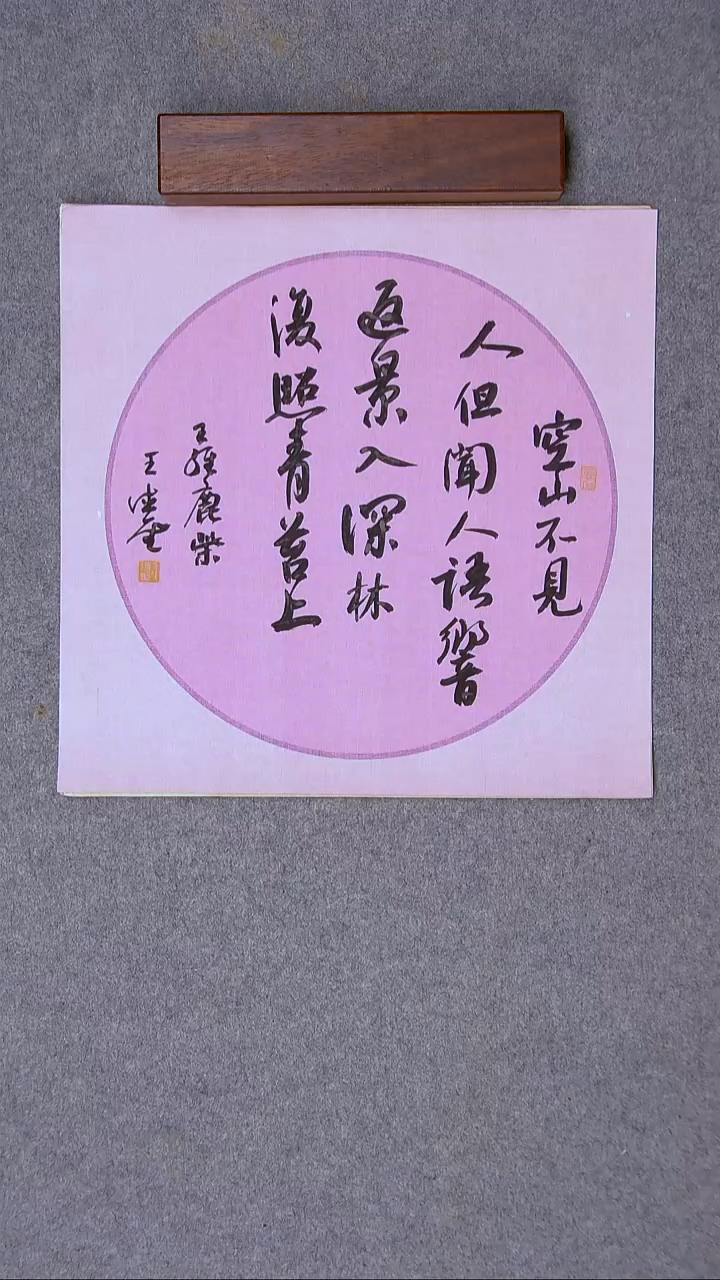 空山不見
人但聞人語響
返景入深林
復照青苔上
王維鹿柴
王